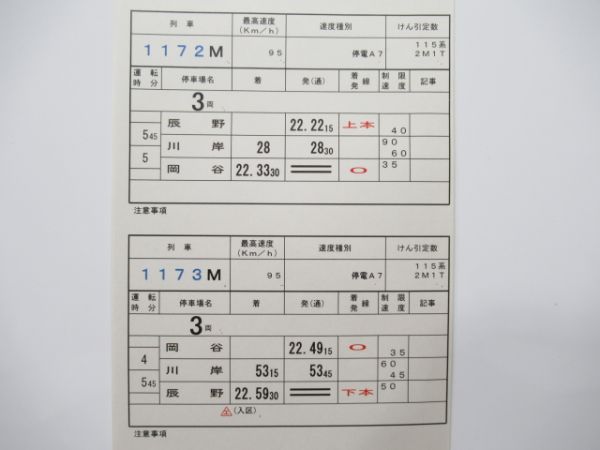 列車 最高速度(Km/h) 速度種別 けん引定数
1172M 95 停電A7 115系 2M1T
運転時分 停車場名 着 発(通) 着発線 制限速度 記事
3両
辰野 22.2215 上本 40
545
川岸 28 2830 90 60
5
岡谷 22.3330 〇 35
注意事項
列車 最高速度(Km/h) 速度種別 けん引定数
1173M 95 停電A7 115系 2M1T
運転時分 停車場名 着 発(通) 着発線 制限速度 記事
3両
岡谷 22.4915 〇 35
4
川岸 5315 5345 60 45
545
辰野 22.5930 下本 50
(入区)
注意事項